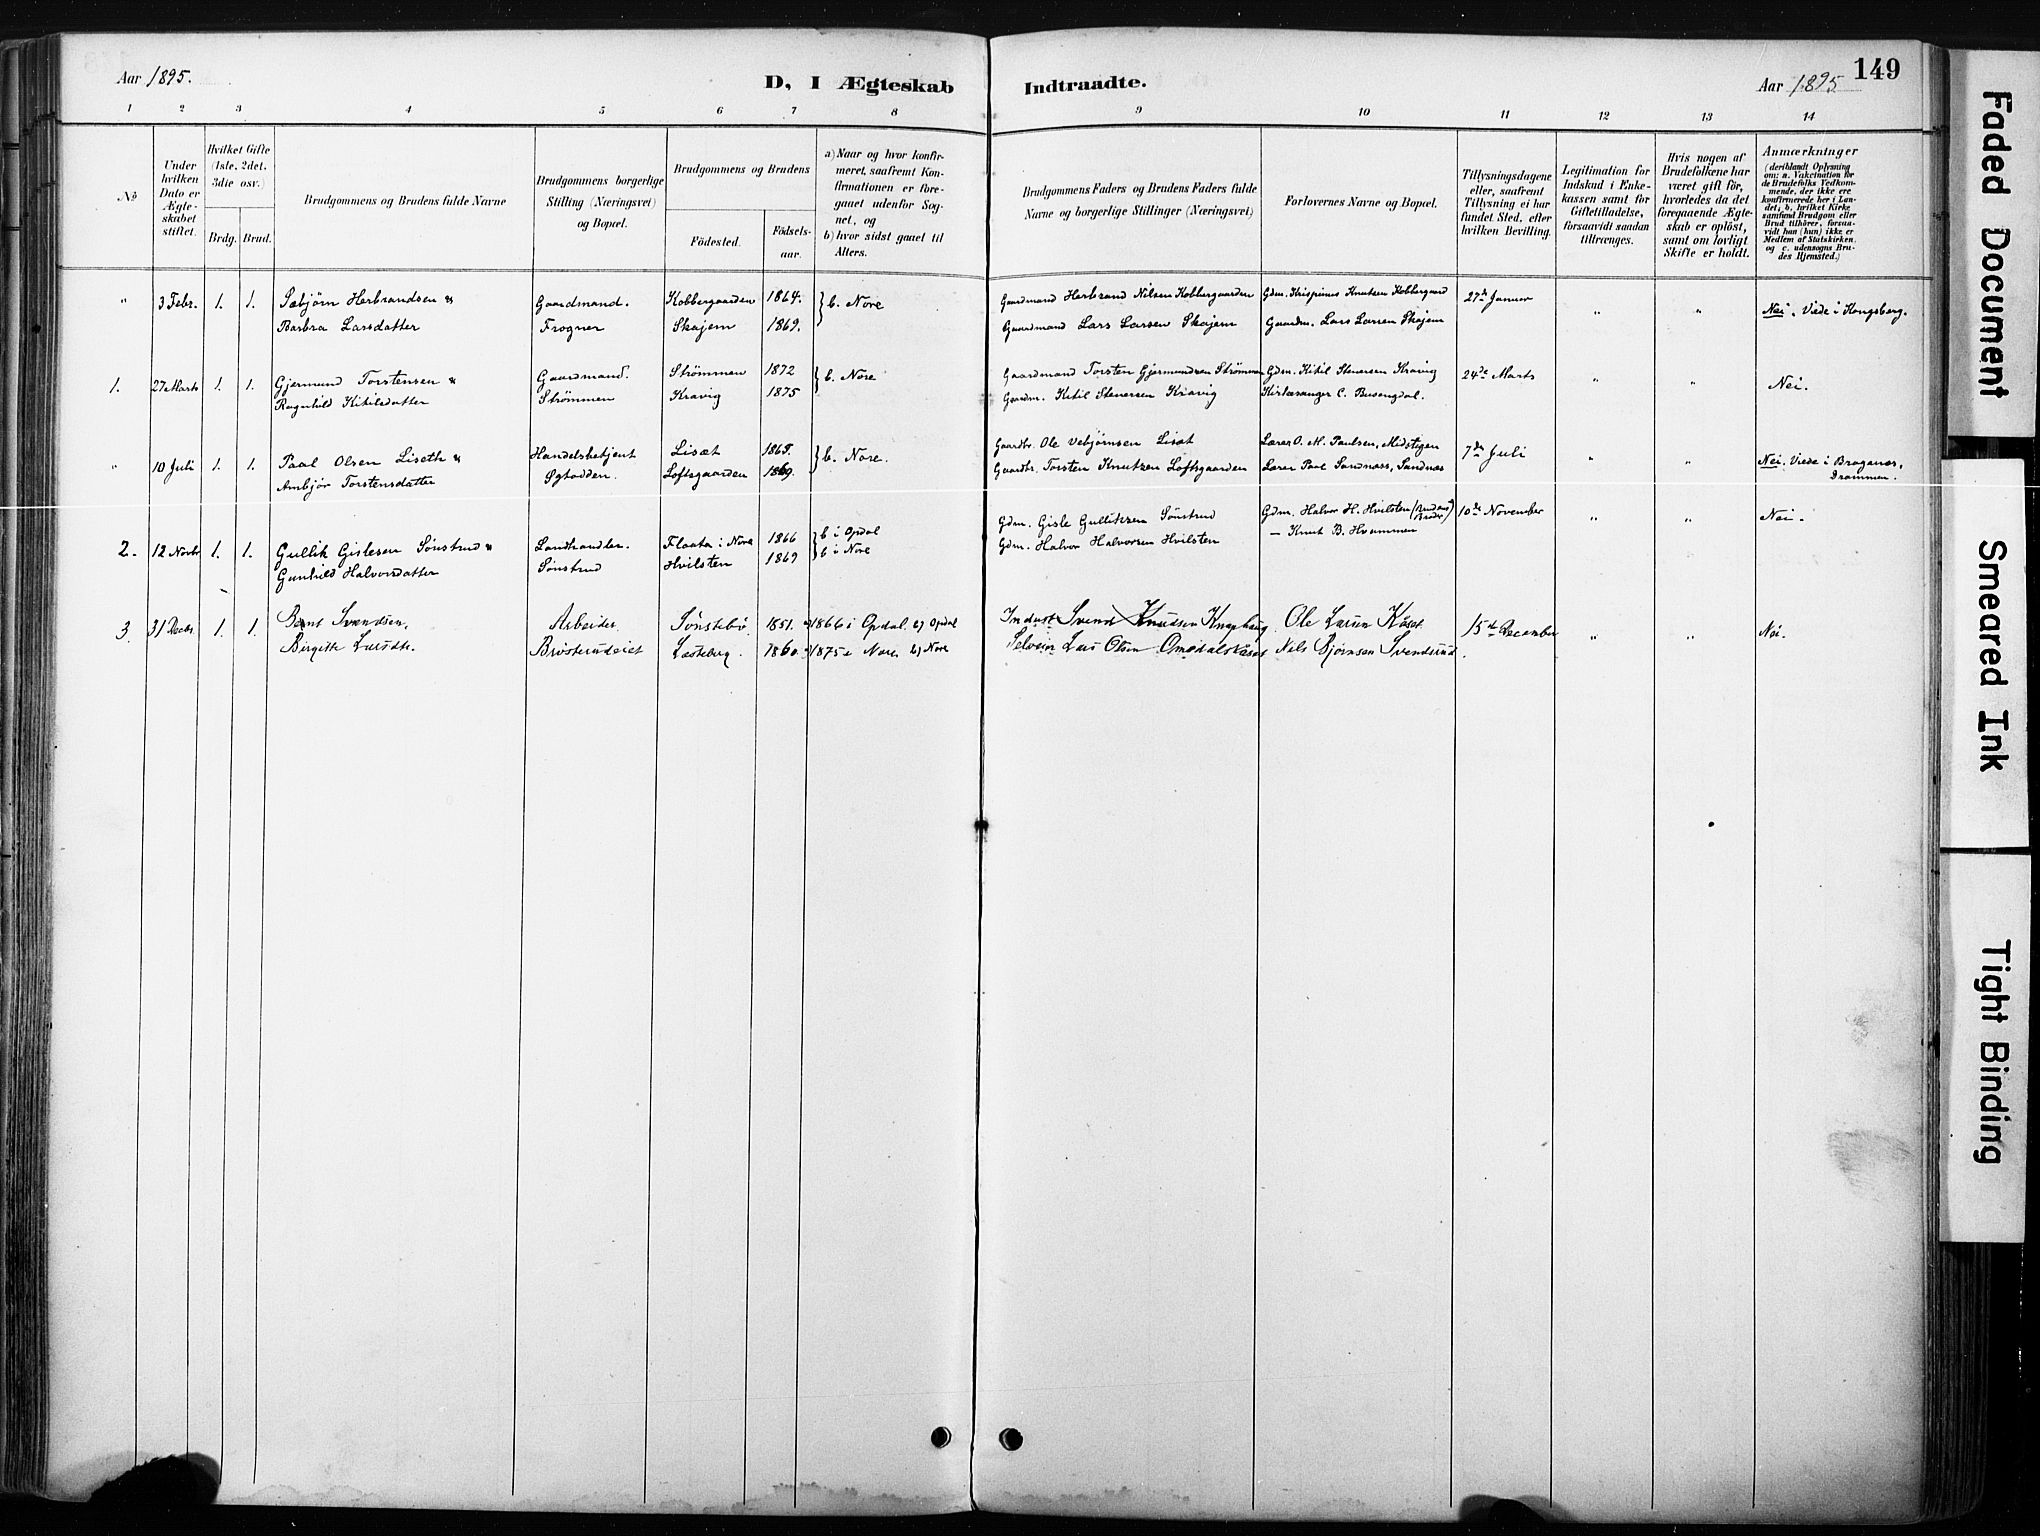 Aar 1895.
D, I Ægteskab Indtraadte.
Aar 1895
149
1 2 3 4 5 6 7 8 9 10 11 12 13 14
No
Under hvilken Dato er Ægte-skabet stiftet.
Hvilket Gifte (1ste, 2det, 3die osv.)
Brdg. Brud.
Brudgommens og Brudens fulde Navne
Brudgommens borgerlige Stilling (Næringsvei) og Bopæl.
Brudgommens og Brudens
Födested.
Födsels-aar.
a) Naar og hvor konfir-meret, saafremt Kon-firmationen er fore-gaaet udenfor Sog-net, og
b) hvor sidst gaaet til Alters.
Brudgommens Faders og Brudens Faders fulde Navne og borgerlige Stillinger (Næringsvei)
Forlovernes Navne og Bopæl.
Tillysningsdagene eller, saafremt Tillysning ei har fundet Sted, efter hvilken Bevilling.
Legitimation for Indskud i Enke-kassen samt for Giftetilladelse, forsaavidt saadan tiltrænges.
Hvis nogen af Brudefolkene har været gift för, hvorledes da det foregaaende Ægte-skab er oplöst, samt om lovligt Skifte er holdt.
Anmærkninger (deriblandt Oplysning om: a. Vakcination for de Brudefolks Vedkom-mende, der ikke ere konfirmerede her i Lan-det; b. hvilket Kirke-samfund Brudgom eller Brud tilhører, forsaa-vidt han (hun) ikke er Medlem af Statskirken, og c. udensogns Bru-des Hjemsted.)
" 3 Febr. 1. 1. Sæbjörn Herbrandsen & Gaardmand. Kobbergaarden 1864. } b. Nore Gaardmand Herbrand Nilsen Kobbergaarden Gdm. Krispinus Knutsen Kobbergaard 27de Januar " " Nei. Viede i Kongsberg.
Barbra Larsdatter Frogner Skajem 1869. Gaardmand Lars Larsen Skajem Gaardm. Lars Larsen Skajem
1. 27 Marts 1. 1. Gjermund Torstensen & Gaardmand. Strömmen 1872 } b. Nore Gaardmand Torsten Gjermundsen Strömmen Gdm. Kitil Stenersen Kravig 24de Marts " " Nei.
Ragnhild Kitilsdatter Strömmen Kravig 1875 Gaardm. Kitil Stenersen Kravig Kirkesanger C. Busengdal.
" 10 Juli 1. 1. Paal Olsen Liseth & Handelsbetjent Lisæt 1865. } b. Nore. Gaardbr. Ole Vebjörnsen Lisæt Lærer O. M. Paulsen, Midstigen 7de Juli " " Nei. Viede i Bragenæs, Drammen.
Ambjör Torstensdatter Loftsgaarden 1869. Gaardbr. Torsten Knutzen Loftsgaarden Lærer Paal Sandnæss, Sandnæs
2. 12 Novbr 1. 1. Gullik Gislesen Sönstrud & Landhandler. Flaata i Nore 1866 } b i Opdal Gdm. Gisle Gulliksen Sönstrud Gdm. Halvor H. Hvilsten (Brudens Broder) 10de November " " Nei.
Gunhild Halvorsdatter Sönstrud Hvilsten 1869 b i Nore Gdm. Halvor Halvorsen Hvilsten — Knut B. Hvammen
3. 31 Decbr. 1. 1. Svendsen, Arbeider Sönstebö 1851. 1866 i Opdal b) Opdal Svend Knudsen Knaphaug Ole Larsen 15de December " " Nei.
Birgitte Larsdtr. Bröstrudeiet 1860. 1875 i Nore b) Nore Selveier Lars Olsen Nils Bjørnsen Svendsrud.
Faded Document
Smeared Ink
Tight Binding